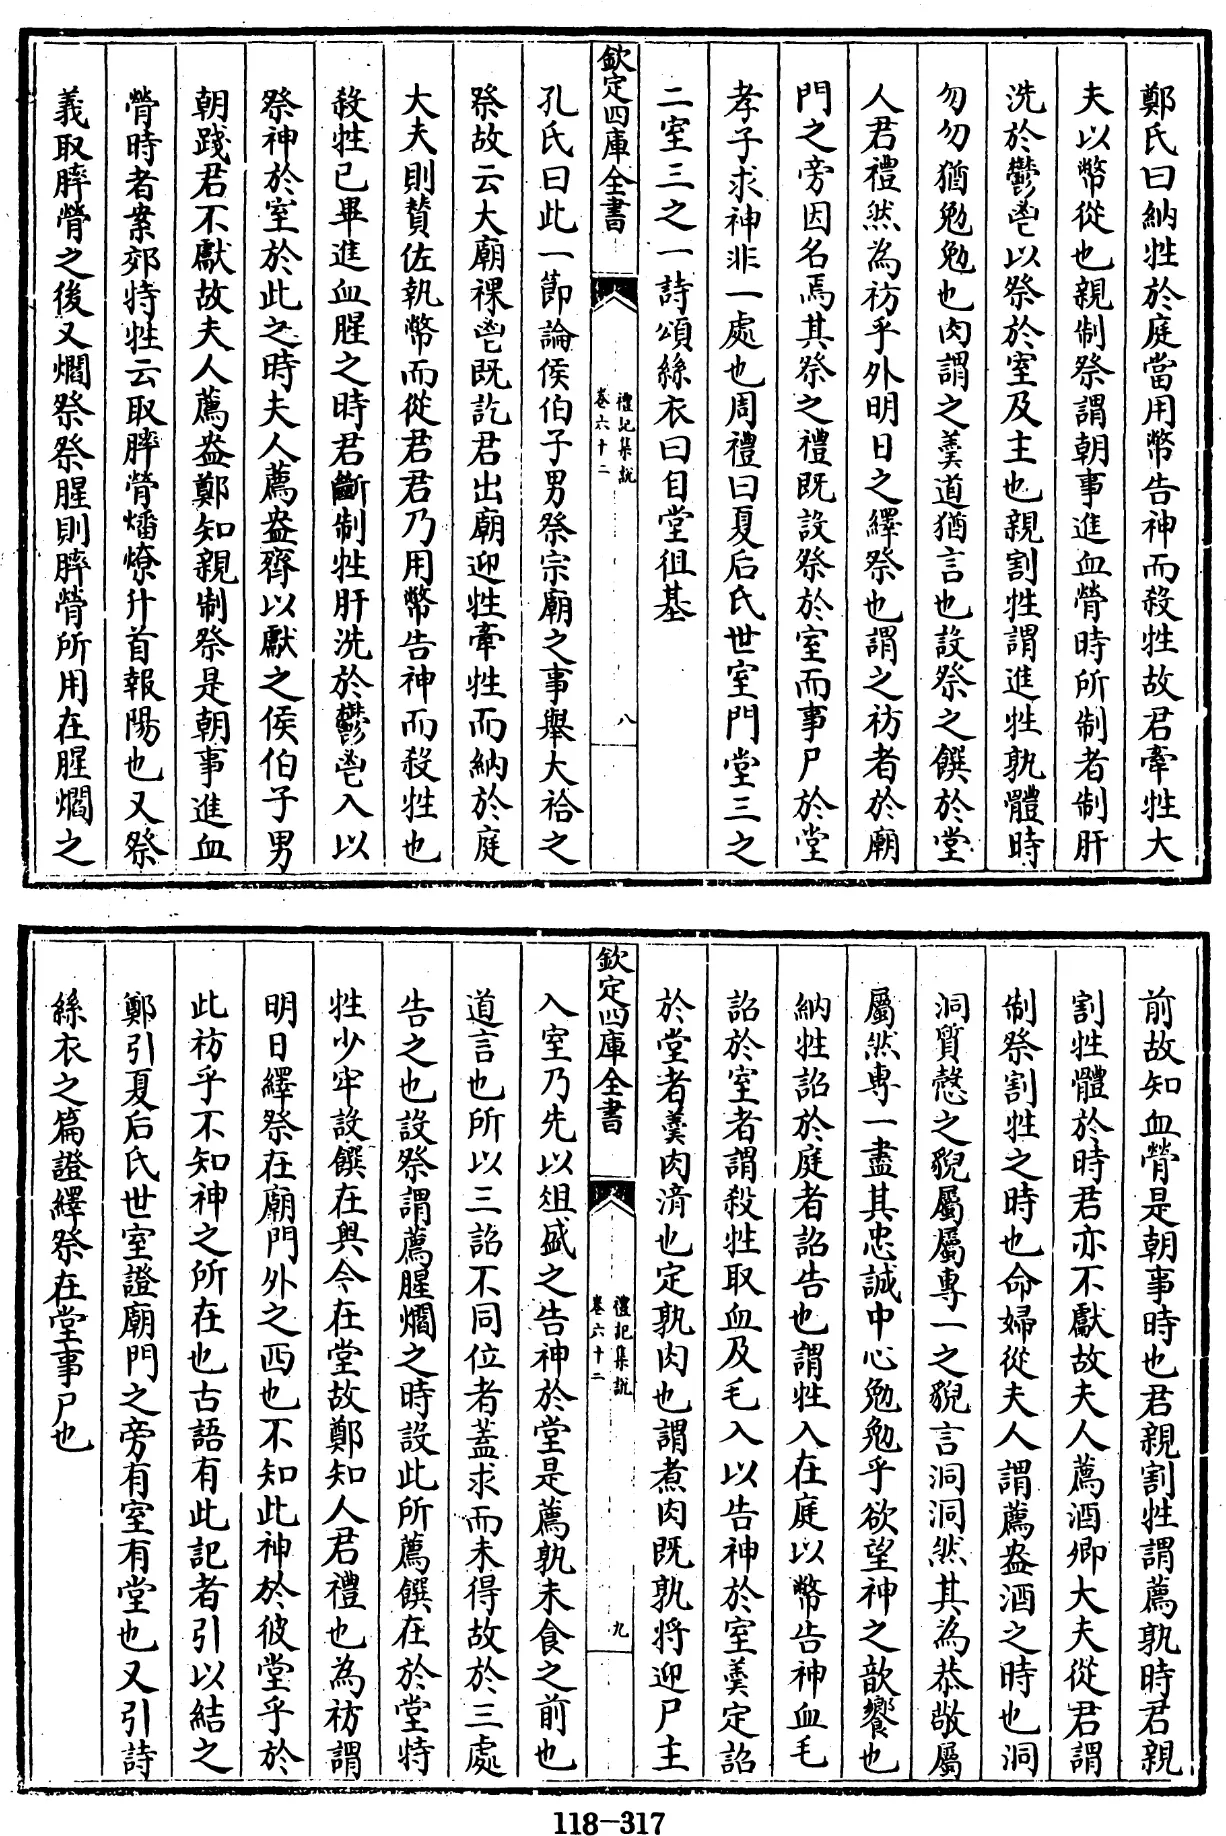 鄭氏曰納牲於庭當用幣告神而殺牲故君牽牲大
夫以幣從也親制祭謂朝事進血膋時所制者制肝
洗於鬱鬯以祭於室及主也親割牲謂進牲孰體時
勿勿猶勉勉也肉謂之羮道猶言也設祭之饌於堂
人君禮然為祊乎外明日之繹祭也謂之祊者於廟
門之旁因名焉其祭之禮既設祭於室而事尸於堂
孝子求神非一處也周禮曰夏后氏世室門堂三之
二室三之一詩頌絲衣曰自堂徂基
欽定四庫全書
禮記集説
卷六十二
八
孔氏曰此一節論侯伯子男祭宗廟之事舉大祫之
祭故云大廟祼鬯既訖君出廟迎牲牽牲而納於庭
大夫則贊佐執幣而從君君乃用幣告神而殺牲也
殺牲已畢進血腥之時君斷制牲肝洗於鬱鬯入以
祭神於室於此之時夫人薦盎齊以獻之侯伯子男
朝踐君不獻故夫人薦盎鄭知親制祭是朝事進血
膋時者案郊特牲云取膟膋燔燎升首報陽也又祭
義取膟膋之後又爓祭祭腥則膟膋所用在腥爓之
前故知血膋是朝事時也君親割牲謂薦孰時君親
割牲體於時君亦不獻故夫人薦酒卿大夫從君謂
制祭割牲之時也命婦從夫人謂薦盎酒之時也洞
洞質慤之貌屬屬專一之貌言洞洞然其為恭敬屬
屬然專一盡其忠誠中心勉勉乎欲望神之歆饗也
納牲詔於庭者詔告也謂牲入在庭以幣告神血毛
詔於室者謂殺牲取血及毛入以告神於室羮定詔
於堂者羮肉湆也定孰肉也謂煮肉既孰将迎尸主
欽定四庫全書
禮記集説
卷六十二
九
入室乃先以俎盛之告神於堂是薦孰未食之前也
道言也所以三詔不同位者蓋求而未得故於三處
告之也設祭謂薦腥爓之時設此所薦饌在於堂特
牲少牢設饌在奥今在堂故鄭知人君禮也為祊謂
明日繹祭在廟門外之西也不知此神於彼堂乎於
此祊乎不知神之所在也古語有此記者引以結之
鄭引夏后氏世室證廟門之旁有室有堂也又引詩
絲衣之篇證繹祭在堂事尸也
118-317